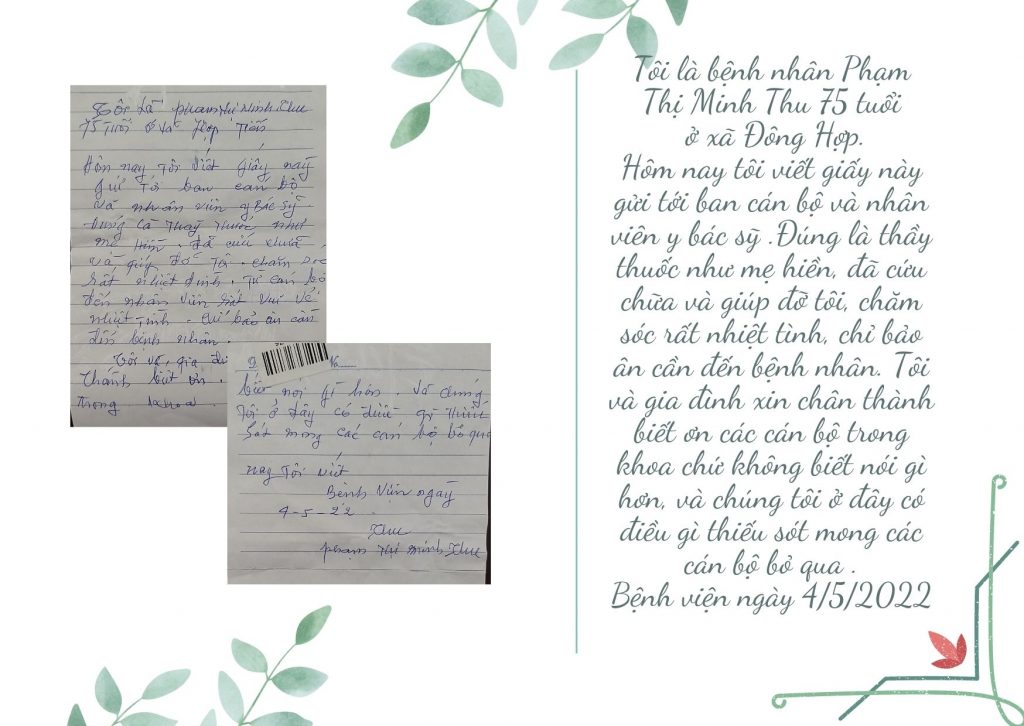 Tôi là phạm thị Minh Thu
75 Tuổi ở xã Hợp Tiến
Hôm nay Tôi viết giấy này
gửi Tới ban cán bộ
và nhân viên y Bác sỹ
Đúng là Thầy Thuốc như
mẹ Hiền. đã cứu chữa
và giúp đỡ Tôi. chăm sóc
rất nhiệt tình. Từ cán bộ
đến nhân viên rất vui vẻ
nhiệt Tình. chỉ bảo ân cần
đến bệnh nhân.
Tôi và gia đì
Thành biết ơn.
Trong khoa
No
biết nói gì hơn. và chúng
Tôi ở đây có điều gì Thiếu
sót mong các cán bộ bỏ qua
nay Tôi viết
Bệnh viện ngày
4-5-22
Thu
phạm Thị Minh Thu
Tôi là bệnh nhân Phạm
Thị Minh Thu 75 tuổi
ở xã Đông Hợp.
Hôm nay tôi viết giấy này
gửi tới ban cán bộ và nhân
viên y bác sỹ .Đúng là thầy
thuốc như mẹ hiền, đã cứu
chữa và giúp đỡ tôi, chăm
sóc rất nhiệt tình, chỉ bảo
ân cần đến bệnh nhân. Tôi
và gia đình xin chân thành
biết ơn các cán bộ trong
khoa chứ không biết nói gì
hơn, và chúng tôi ở đây có
điều gì thiếu sót mong các
cán bộ bỏ qua .
Bệnh viện ngày 4/5/2022